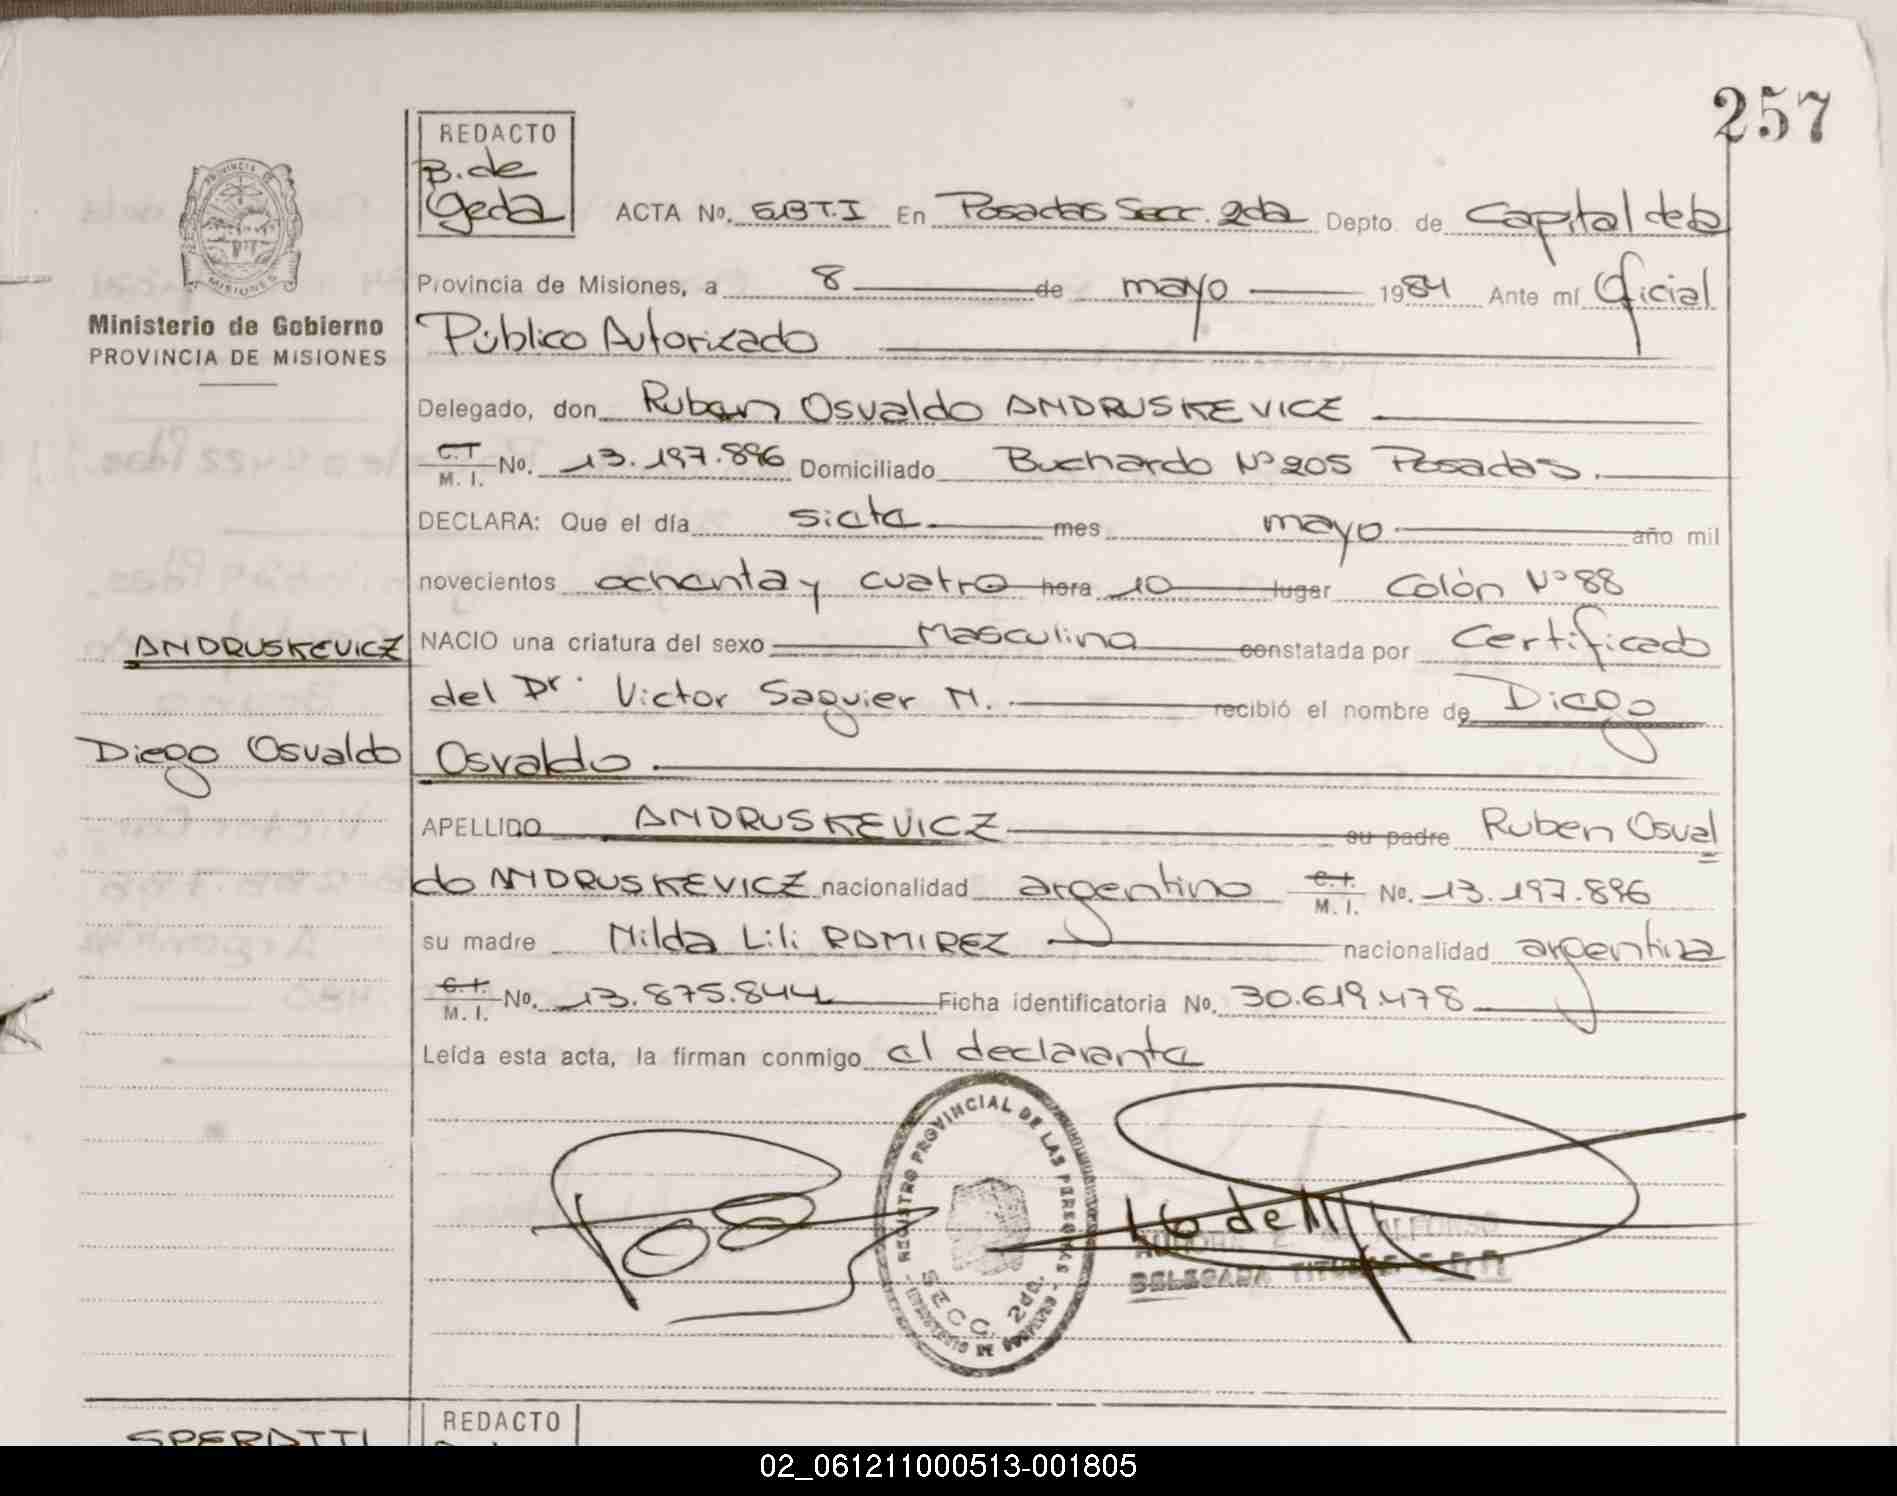 257
REDACTO
B. de
Geda
PROVINCIA DE
MISIONES
Ministerio de Gobierno
PROVINCIA DE MISIONES
ACTA No. 513T.I En Posadas Secc. 2da Depto. de Capital de la
Provincia de Misiones, a 8 de mayo 1984 Ante mí Oficial
Público Autorizado
Delegado, don Ruben Osvaldo ANDRUSKEVICZ
C.I M. I. No. 13.197.896 Domiciliado Buchardo Nº 205 Posadas.
DECLARA: Que el día siete mes mayo año mil
novecientos ochenta y cuatro hora 10 lugar Colón Nº 88
ANDRUSKEVICZ
NACIO una criatura del sexo Masculino constatada por Certificado
del Dr. Victor Saguier M. recibió el nombre de Diego
Diego Osvaldo
Osvaldo.
APELLIDO ANDRUSKEVICZ su padre Ruben Osval
do ANDRUSKEVICZ nacionalidad argentino C.I. M. I. No. 13.197.896
su madre Nilda Lili RAMIREZ nacionalidad argentina
C.I. M. I. No. 13.875.844 Ficha identificatoria No. 30.619.478
Leída esta acta, la firman conmigo el declarante
REGISTRO PROVINCIAL DE LAS PERSONAS
SECC. 2da.
DELEGADA TITULAR
SPERATTI
REDACTO
02_061211000513-001805